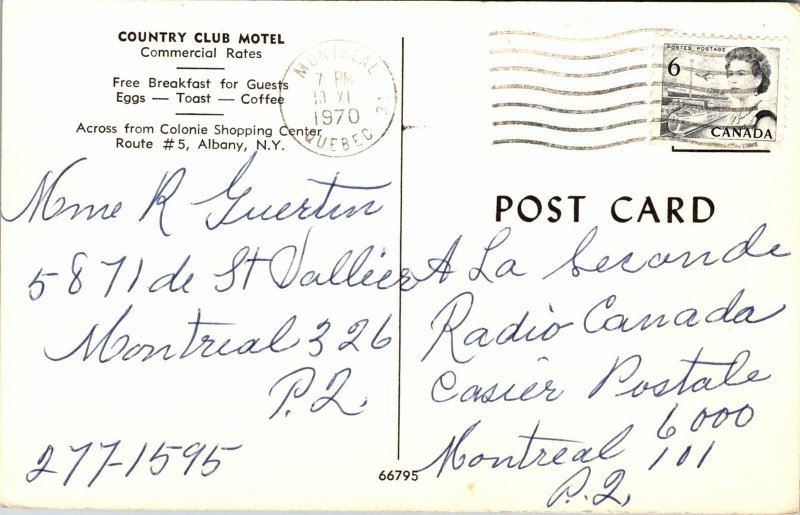 COUNTRY CLUB MOTEL
Commercial Rates
Free Breakfast for Guests
Eggs — Toast — Coffee
Across from Colonie Shopping Center
Route #5, Albany, N.Y.
MONTREAL
7 PM
13 XI
1970
QUEBEC 31
POSTES POSTAGE
6
CANADA
POST CARD
Mme R Guertin
5871 de St Vallier
Montreal 326
P.Q.
277-1595
A La Seconde
Radio Canada
Casier Postale
6000
Montreal 101
P.Q.
66795